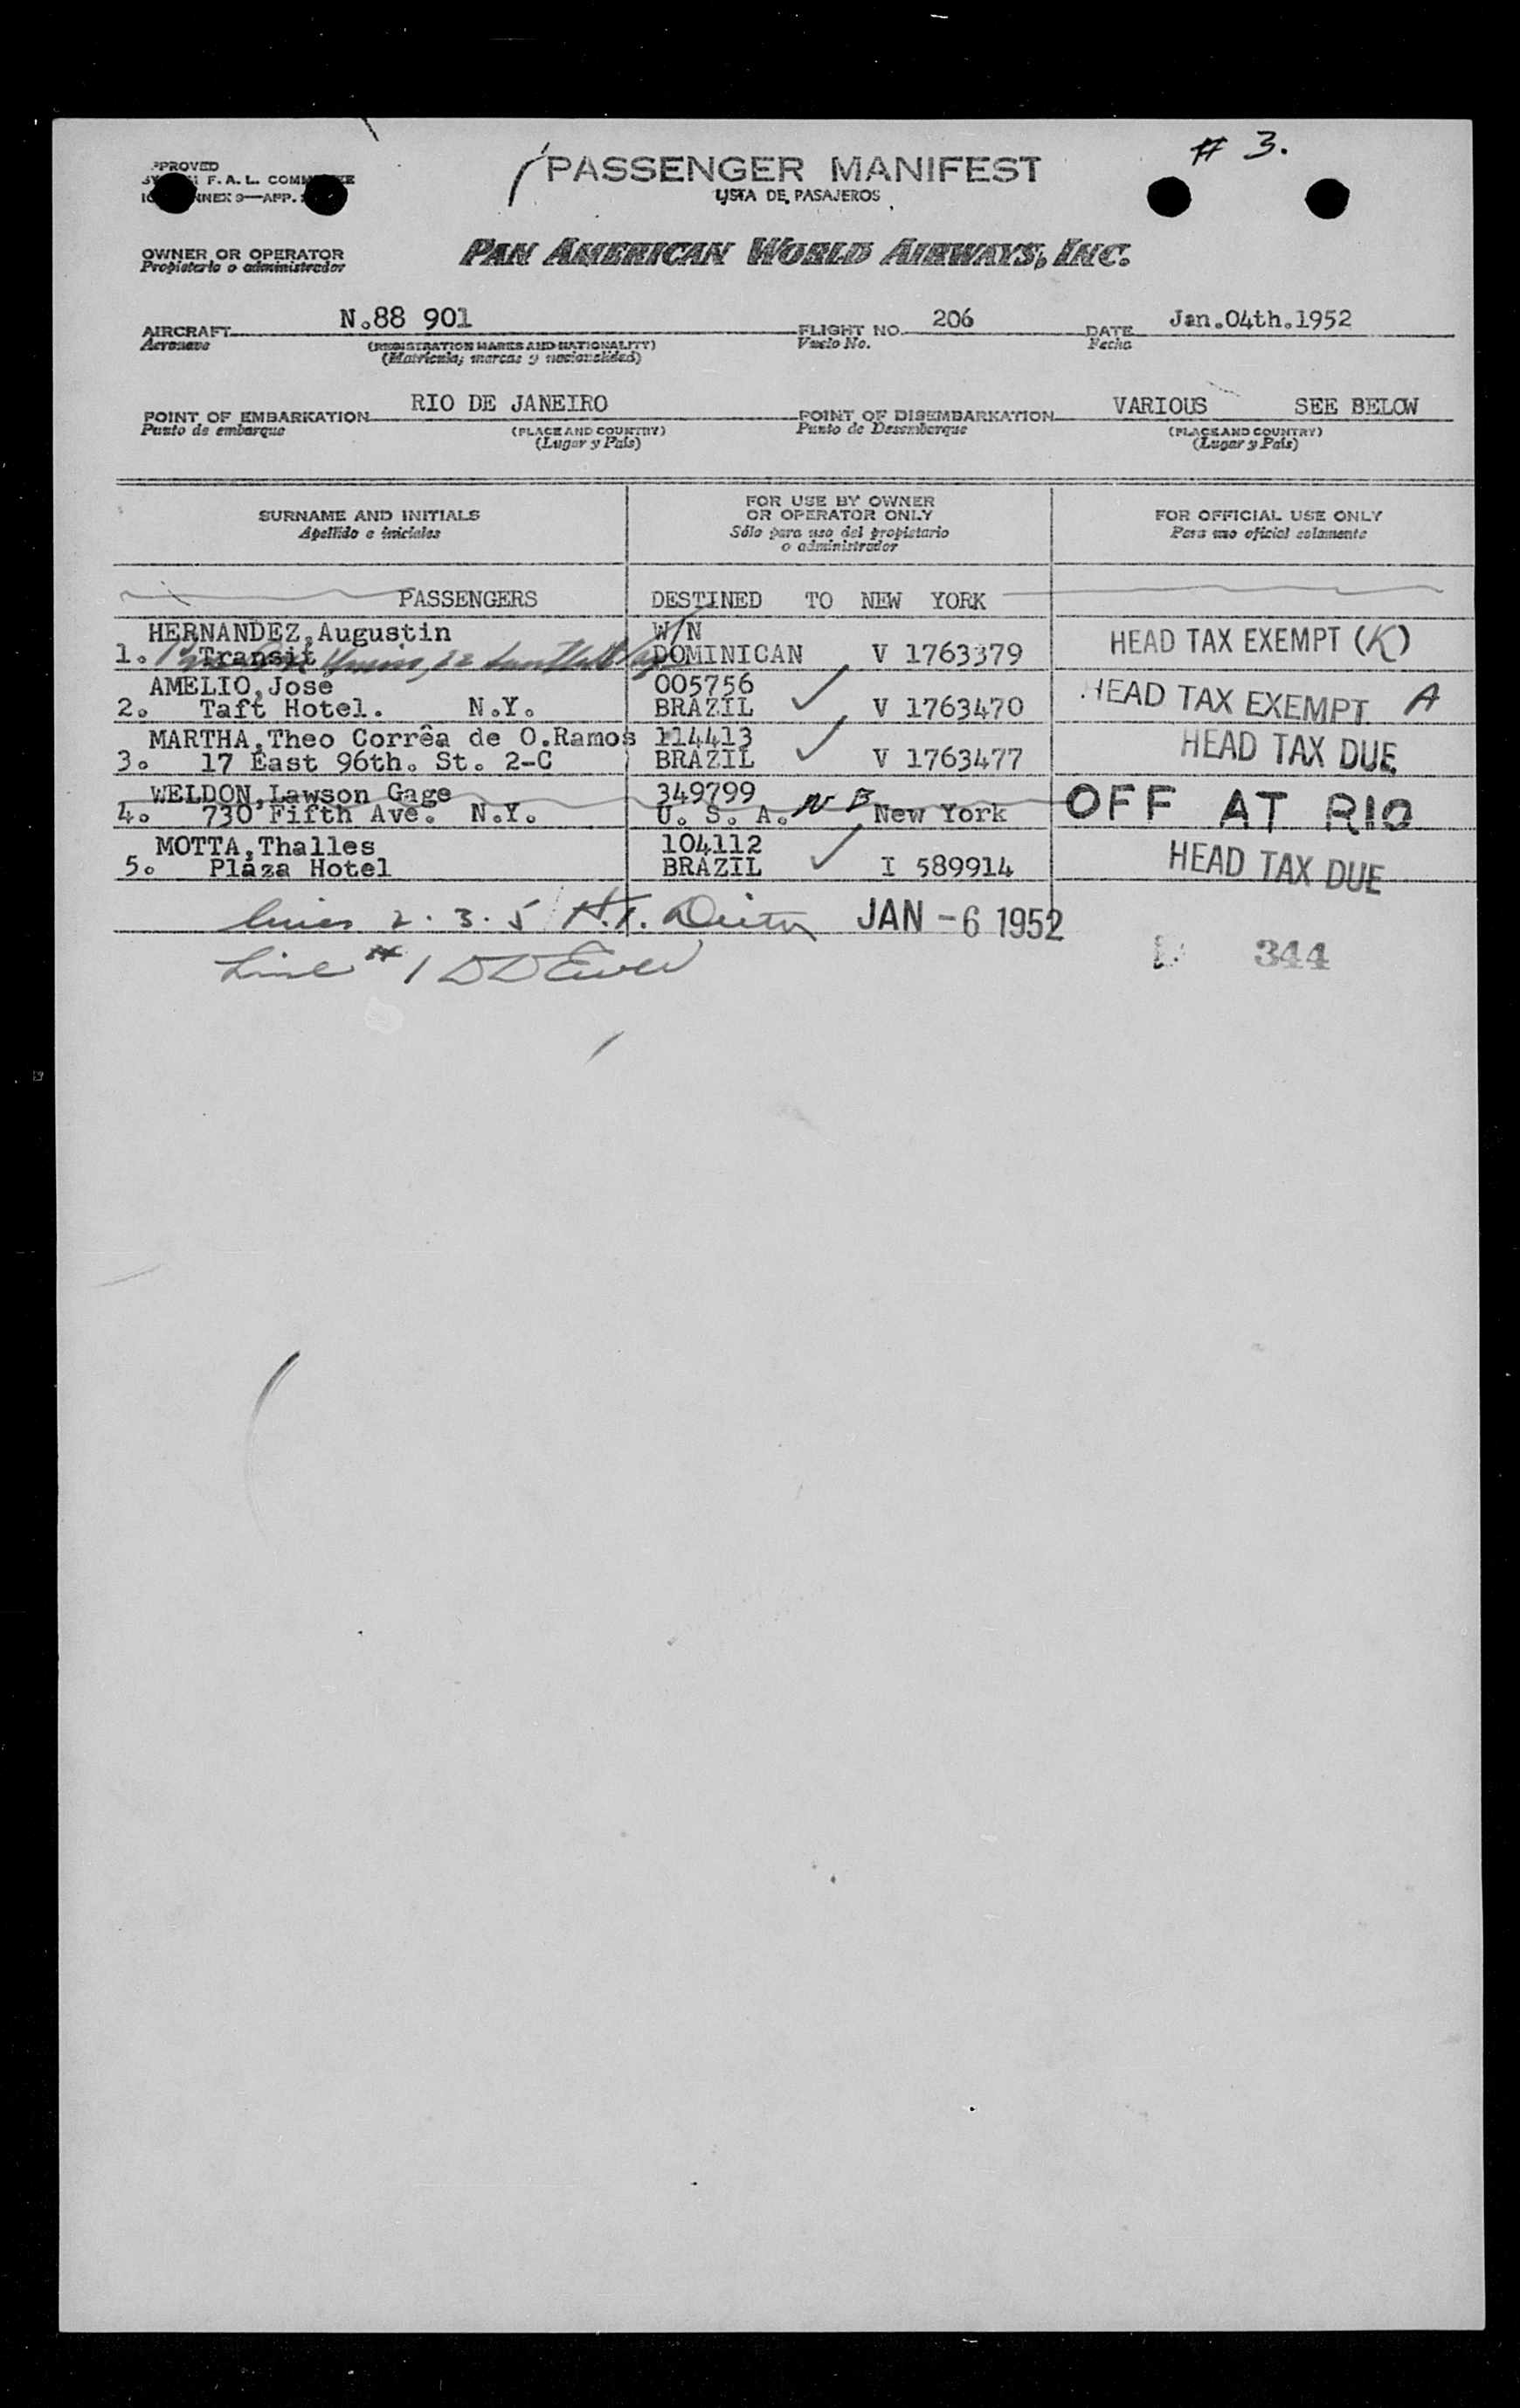 # 3.
PASSENGER MANIFEST
LISTA DE PASAJEROS
F.A.L.
OWNER OR OPERATOR
Propietario o administrador
PAN AMERICAN WORLD AIRWAYS, INC.
AIRCRAFT N.88 901 FLIGHT NO. 206 DATE Jan.04th.1952
Aeronave (REGISTRATION MARKS AND NATIONALITY) Vuelo No. Fecha
(Matricula, marcas y nacionalidad)
POINT OF EMBARKATION RIO DE JANEIRO POINT OF DISEMBARKATION VARIOUS SEE BELOW
Punto de embarque (PLACE AND COUNTRY) Punto de Desembarque (PLACE AND COUNTRY)
(Lugar y País) (Lugar y País)
SURNAME AND INITIALS
Apellido e iniciales
FOR USE BY OWNER
OR OPERATOR ONLY
Sólo para uso del propietario
o administrador
FOR OFFICIAL USE ONLY
Para uso oficial solamente
PASSENGERS DESTINED TO NEW YORK
HERNANDEZ,Augustin W/N
1. Transit DOMINICAN V 1763379 HEAD TAX EXEMPT (K)
AMELIO,Jose 005756
2. Taft Hotel. N.Y. BRAZIL V 1763470 HEAD TAX EXEMPT A
MARTHA,Theo Corrêa de O.Ramos 114413
3. 17 East 96th. St. 2-C BRAZIL V 1763477 HEAD TAX DUE
WELDON,Lawson Gage 349799
4. 730 Fifth Ave. N.Y. U. S. A. New York OFF AT RIO
MOTTA,Thalles 104112
5. Plaza Hotel BRAZIL I 589914 HEAD TAX DUE
Lines 2.3.5 JAN -6 1952
Line # 1
344